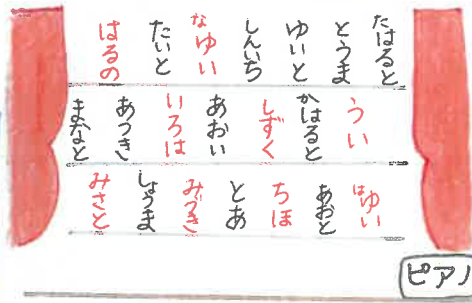 たはると
とうま
ゆいと
しんいち
なゆい
たいと
はるの
うい
かはると
しずく
あおい
いろは
あつき
まなと
はゆい
あおと
ちほ
とあ
みづき
しょうま
みさと
ピアノ